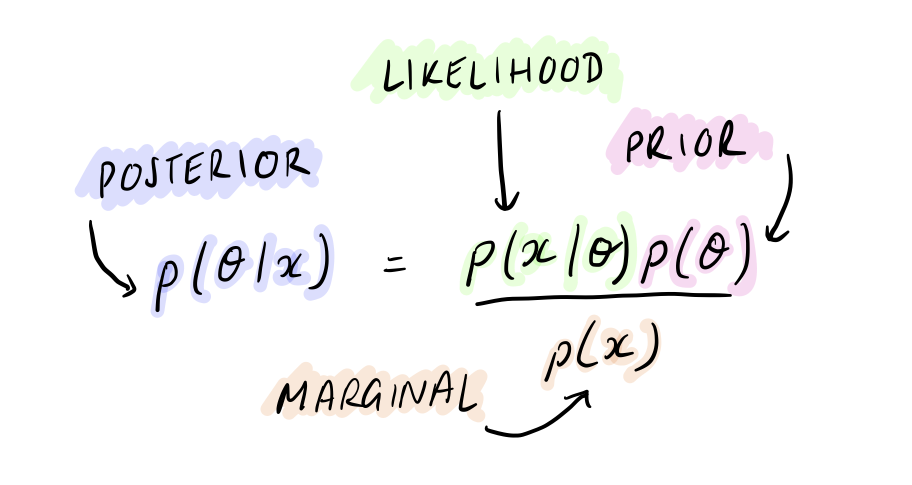 LIKELIHOOD
PRIOR
POSTERIOR
p(θ|x) = p(x|θ)p(θ)
p(x)
MARGINAL